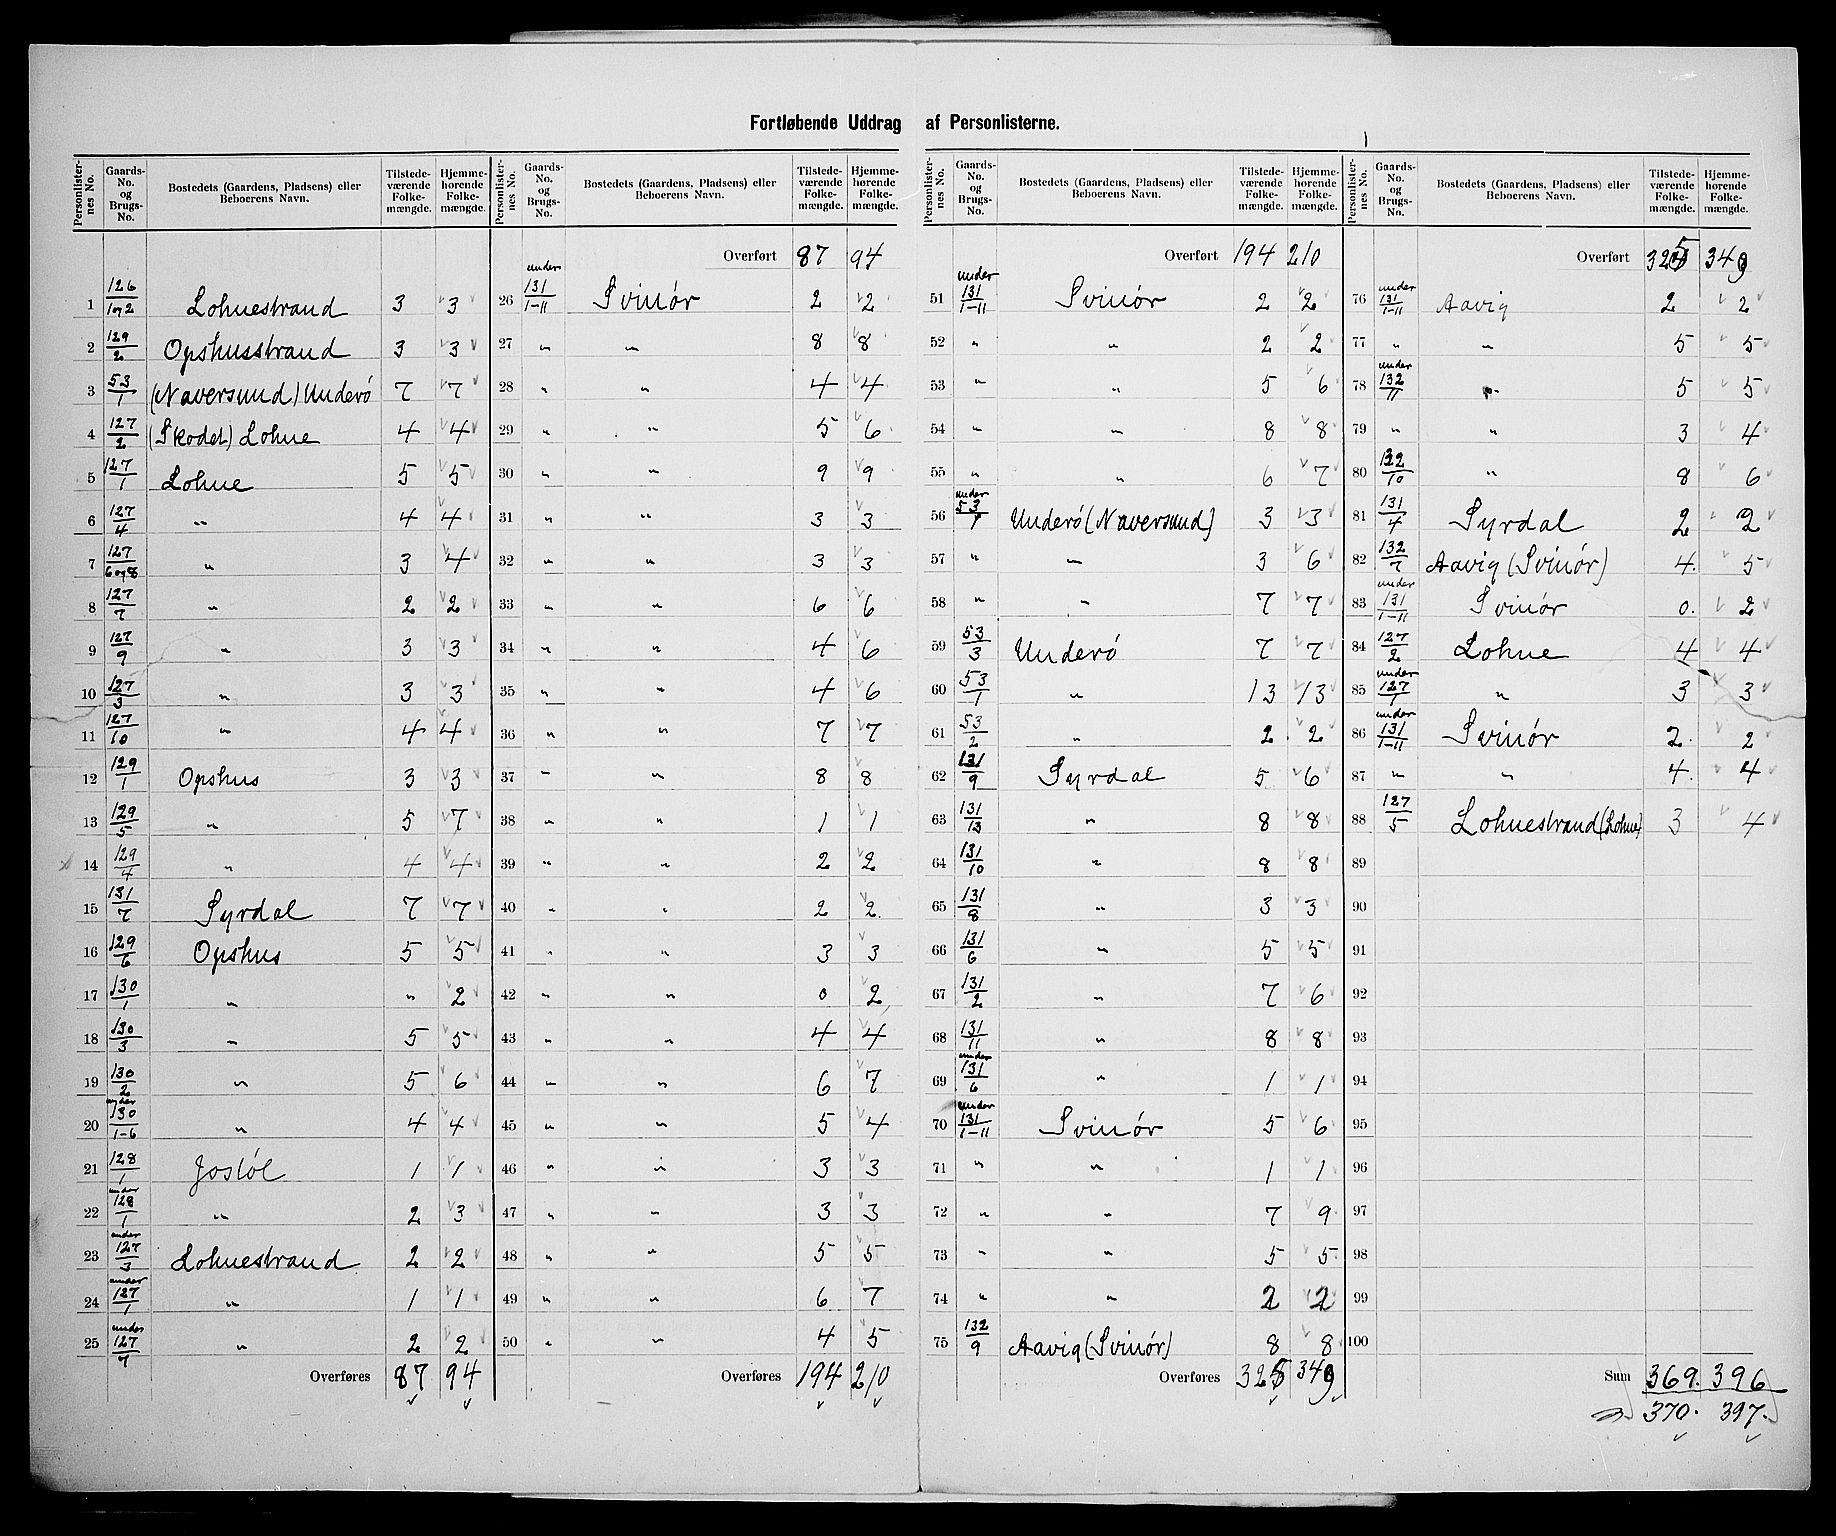 Fortløbende Uddrag af Personlisterne.
Personlisternes No. | Gaards-No. og Brugs-No. | Bostedets (Gaardens, Pladsens) eller Beboerens Navn. | Tilstedeværende Folkemængde. | Hjemmehørende Folkemængde.
1 | 126/1og2 | Lohnestrand | 3 | 3
2 | 129/2 | Opshusstrand | 3 | 3
3 | 53/1 | (Naversund) Underö | 7 | 7
4 | 127/2 | (Skodet) Lohne | 4 | 4
5 | 127/1 | Lohne | 5 | 5
6 | 127/4 | " | 4 | 4
7 | 127/6og8 | " | 3 | 4
8 | 127/7 | " | 2 | 2
9 | 127/9 | " | 3 | 3
10 | 127/3 | " | 3 | 3
11 | 127/10 | " | 4 | 4
12 | 129/1 | Opshus | 3 | 3
13 | 129/5 | " | 5 | 7
14 | 129/4 | " | 4 | 4
15 | 131/7 | Syrdal | 7 | 7
16 | 129/6 | Opshus | 5 | 5
17 | 130/1 | " | " | 2
18 | 130/3 | " | 5 | 5
19 | 130/2 | " | 5 | 6
20 | under 130/1-6 | " | 4 | 4
21 | 128/1 | Jostöl | 1 | 1
22 | under 128/1 | " | 2 | 3
23 | under 127/3 | Lohnestrand | 2 | 2
24 | under 127/1 | " | 1 | 1
25 | under 127/7 | " | 2 | 2
Overføres | 87 | 94
Personlisternes No. | Gaards-No. og Brugs-No. | Bostedets (Gaardens, Pladsens) eller Beboerens Navn. | Tilstedeværende Folkemængde. | Hjemmehørende Folkemængde.
Overført | 87 | 94
26 | under 131/1-11 | Svinör | 2 | 2
27 | " | " | 8 | 8
28 | " | " | 4 | 4
29 | " | " | 5 | 6
30 | " | " | 9 | 9
31 | " | " | 3 | 3
32 | " | " | 3 | 3
33 | " | " | 6 | 6
34 | " | " | 4 | 6
35 | " | " | 4 | 6
36 | " | " | 7 | 7
37 | " | " | 8 | 8
38 | " | " | 1 | 1
39 | " | " | 2 | 2
40 | " | " | 2 | 2
41 | " | " | 3 | 3
42 | " | " | 0 | 2
43 | " | " | 4 | 4
44 | " | " | 6 | 7
45 | " | " | 5 | 4
46 | " | " | 3 | 3
47 | " | " | 3 | 3
48 | " | " | 5 | 5
49 | " | " | 6 | 7
50 | " | " | 4 | 5
Overføres | 194 | 210
Personlisternes No. | Gaards-No. og Brugs-No. | Bostedets (Gaardens, Pladsens) eller Beboerens Navn. | Tilstedeværende Folkemængde. | Hjemmehørende Folkemængde.
Overført | 194 | 210
51 | under 131/1-11 | Svinör | 2 | 2
52 | " | " | 2 | 2
53 | " | " | 5 | 6
54 | " | " | 8 | 8
55 | " | " | 6 | 7
56 | under 53/1 | Underö (Naversund) | 3 | 3
57 | " | " | 3 | 6
58 | " | " | 7 | 7
59 | 53/3 | Underö | 7 | 7
60 | 53/1 | " | 13 | 13
61 | 53/2 | " | 2 | 2
62 | 131/9 | Syrdal | 5 | 6
63 | 131/13 | " | 8 | 8
64 | 131/10 | " | 8 | 8
65 | 131/8 | " | 3 | 3
66 | 131/6 | " | 5 | 5
67 | 131/2 | " | 7 | 6
68 | 131/11 | " | 8 | 8
69 | under 131/6 | " | 1 | 1
70 | under 131/1-11 | Svinör | 5 | 6
71 | " | " | 1 | 1
72 | " | " | 7 | 9
73 | " | " | 5 | 5
74 | " | " | 2 | 2
75 | 132/9 | Aavig (Svinör) | 8 | 8
Overføres | 325 | 349
Personlisternes No. | Gaards-No. og Brugs-No. | Bostedets (Gaardens, Pladsens) eller Beboerens Navn. | Tilstedeværende Folkemængde. | Hjemmehørende Folkemængde.
Overført | 325 | 349
76 | under 131/1-11 | Aavig | 2 | 2
77 | " | " | 5 | 5
78 | under 132/11 | " | 5 | 5
79 | " | " | 3 | 4
80 | 132/10 | " | 8 | 6
81 | 131/4 | Syrdal | 2 | 2
82 | 132/7 | Aavig (Svinör) | 4. | 5
83 | under 131/1-11 | Svinör | 0. | 2
84 | 127/2 | Lohne | 4 | 4
85 | under 127/1 | " | 3 | 3
86 | under 131/1-11 | Svinör | 2. | 2
87 | " | " | 4. | 4
88 | 127/5 | Lohnestrand (Lohne) | 3 | 4
89
90
91
92
93
94
95
96
97
98
99
100
Sum | 369. | 396
370. | 397.